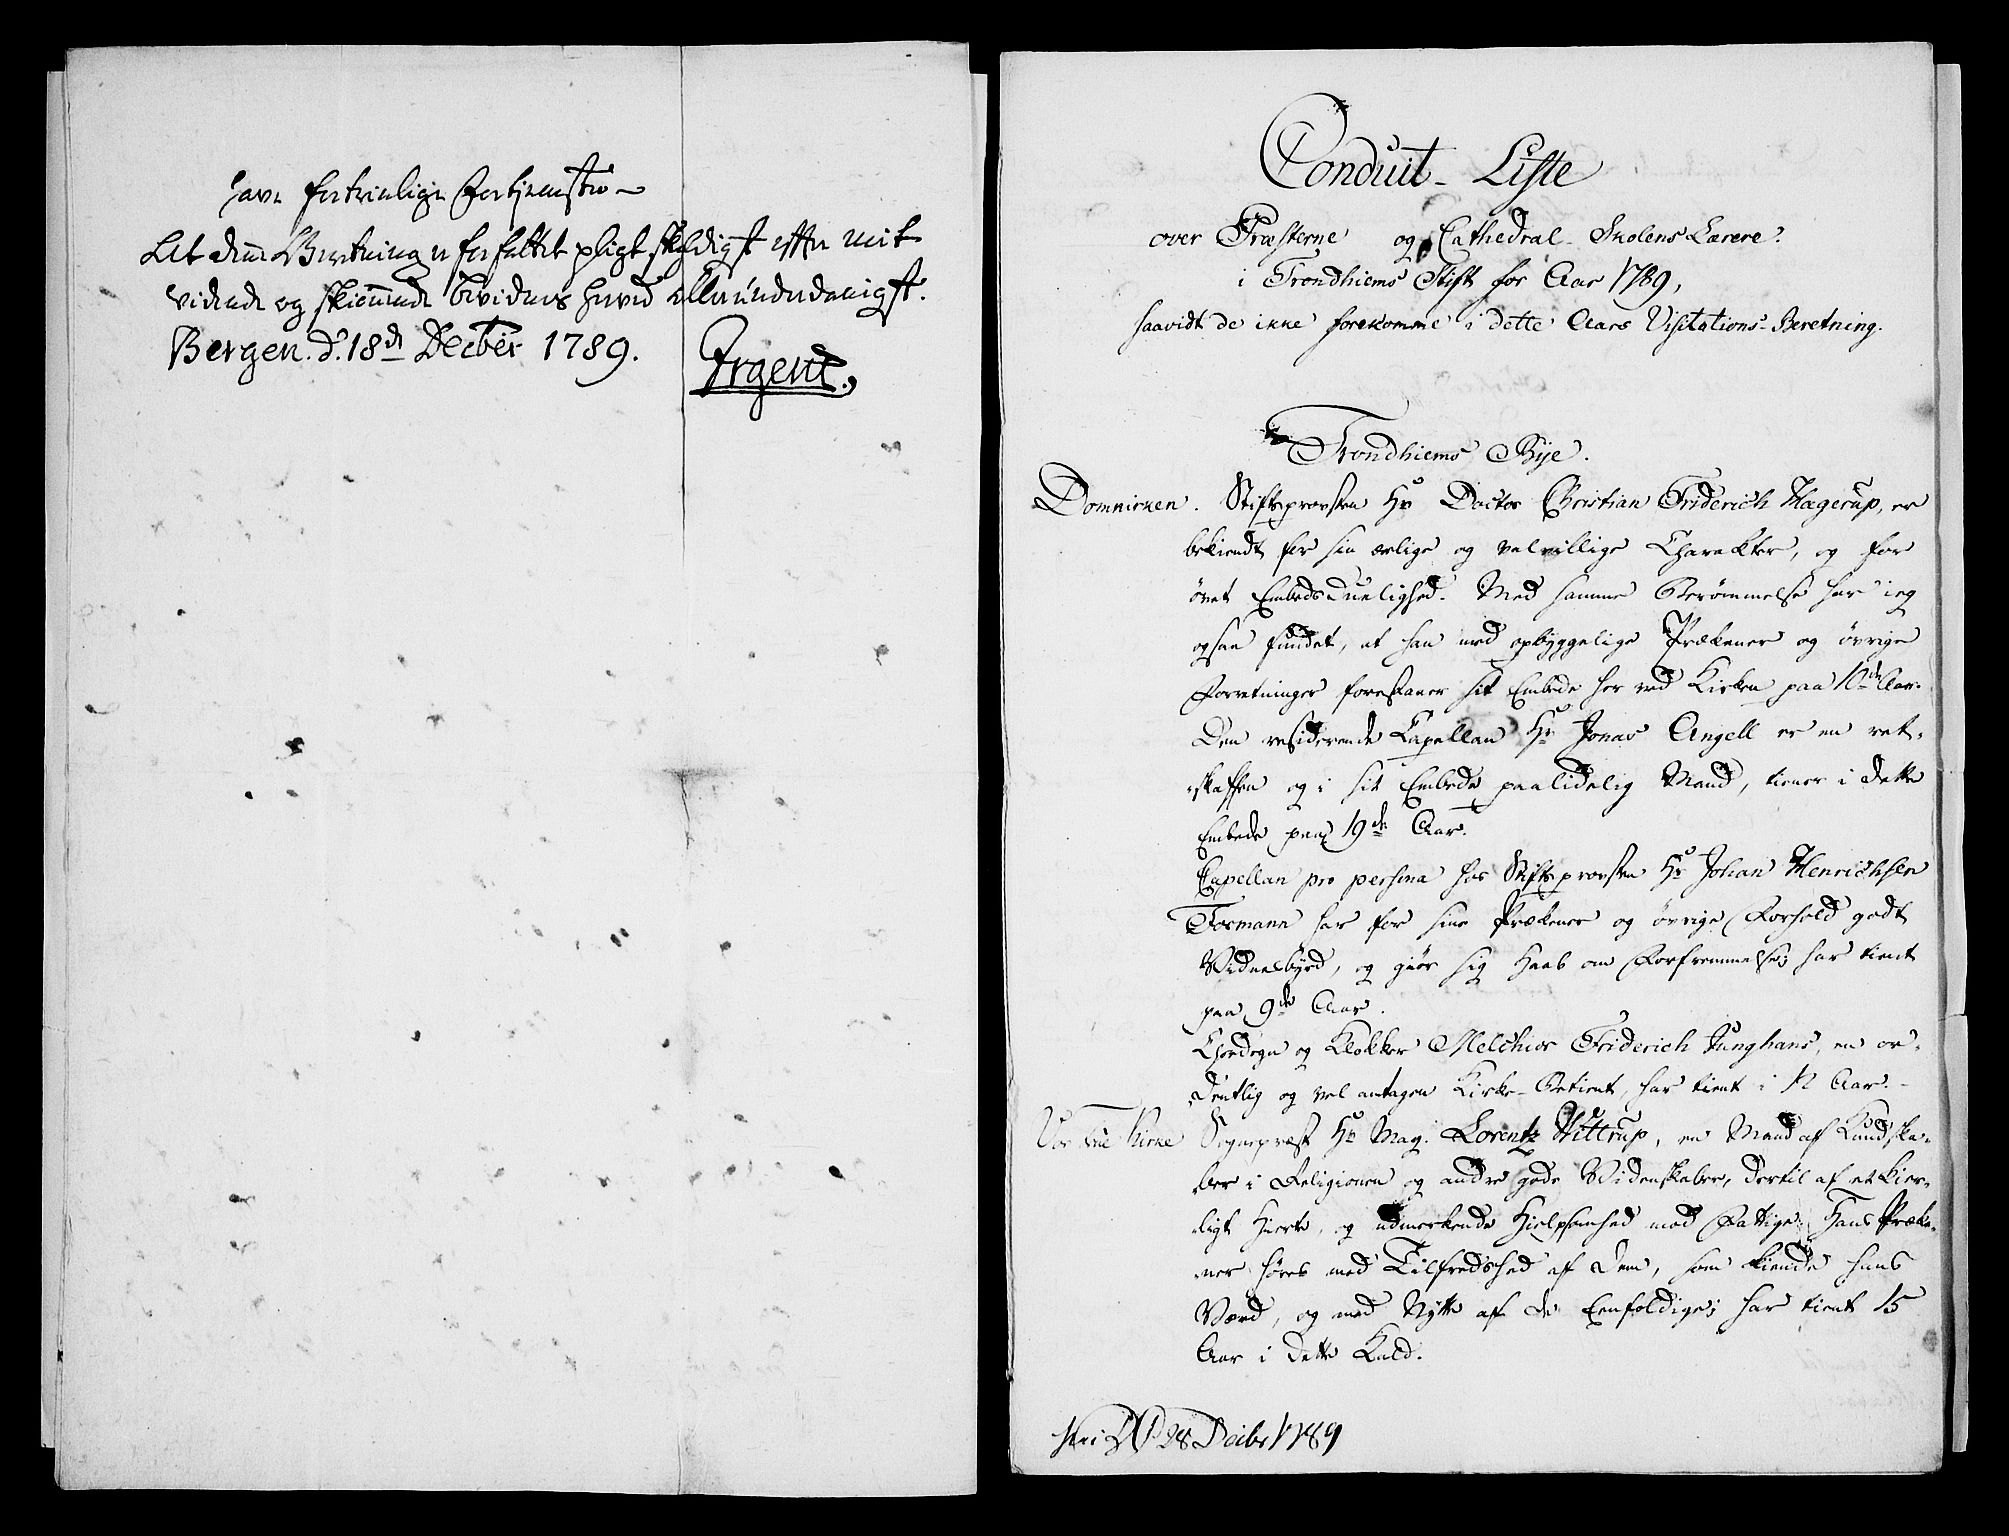 have fortrinlige Fortienester –
At denne Beretning er forfattet pligtskyldigst efter mit
vidende og skiønnende bevidnes herved allerunderdanigst.
Bergen. d. 18de Decber 1789.
Irgens.
Conduit - Liste
over Præsterne og Cathedral-Skolens Lærere
i Trondhiems Stift for Aar 1789,
saavidt de ikke forekomme i dette Aars Visitations-Beretning.
Trondhiems Bye.
Domkirken. Stiftsprovsten Hr Doctor Christian Friderich Hagerup, er
bekiendt for sin ærlige og velvillige Charakter, og for
øvet Embeds Duelighed. Med samme Berømmelse har ieg
ogsaa fundet, at han med opbyggelige Prækener og øvrige
Forretninger forestaaer sit Embede her ved Kirken paa 10de Aar.
Den residerende Capellan Hr Jonas Angell er en ret-
skaffen og i sit Embede paalidelig Mand, tiener i dette
Embede paa 19de Aar.
Capellan pro persona hos Stiftsprovsten Hr Johan Henrichsen
Tormann har for sine Prækener og øvrige Forhold godt
Vidnesbyrd, og giør sig Haab om Forfremmelse; har tient
paa 9de Aar.
Chordegn og Klokker Melchior Friderich Junghans, en or-
dentlig og vel antagen Kirke-Betient, har tient i 12 Aar. -
Vor Frue Kirke Sognepræst Hr Mag. Lorentz Wittrup, en Mand af Kundska-
ber i Religionen og andre gode Videnskaber, dertil af et kier-
ligt Hierte, og udmerkende Hielpsomhed mod Fattige; Hans Præke-
ner høres med Tilfredshed af dem, som kiende hans
Værd, og med Nytte af de Eenfoldige; har tient 15
Aar i dette Kald.
28 Decbr 1789